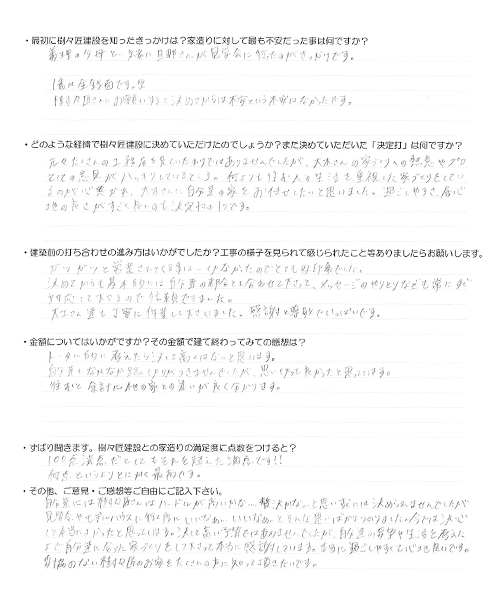 ・最初に樹々匠建設を知ったきっかけは?家造りに対して最も不安だった事は何ですか?
義理の父母と一緒に旦那さんが見学会に行ったのがきっかけです。
1番は金銭面です。
樹々匠さんにお願いすると決めてからは不安という不安はなかったです。
・どのような経緯で樹々匠建設に決めていただけたのでしょうか?また決めていただいた「決定打」は何ですか?
元々たくさんの工務店を見ていたわけではありませんでしたが、大工さんの家づくりへの熱意やプロ
としての意見がハッキリしているところ。何よりも住む人の生活を重視した家づくりをしている
のが心惹かれ、大工さんに自分達の家をお任せしたいと思いました。過ごしやすさ、居心
地の良さがすごく良いのも決定打の1つです。
・建築前の打ち合わせの進み方はいかがでしたか?工事の様子を見られて感じられたこと等ありましたらお願いします。
ガツガツと営業されてくる事は一切なかったのでとても好印象でした。
決めてからも基本的には自分達の都合と合わせて下さって、メッセージのやりとりなども常にすぐ
対応して下さるので信頼できました。
大工さん達も丁寧に作業して下さいました。感謝と尊敬でいっぱいです。
・金額についてはいかがですか?その金額で建て終わってみての感想は?
トータル的に考えたら決して高くはないと思います。
自分達もなかなか踏ん切りがつきませんでしたが、思い切って良かったと思っています。
住むと余計に他の家との違いが良く分かります。
・ずばり聞きます。樹々匠建設との家造りの満足度に点数をつけると?
100点満点だとしてもそれを超えた満点です!!
何点というよりとにかく最高です。
・その他、ご意見・ご感想等ご自由にご記入下さい。
自分達には樹々匠さんはハードルが高いかな…贅沢かな…と思いすぐには決められませんでしたが
見学会やモデルハウスに行く度にいいなぁ…いいなぁ…とそんな思いばかりつのりました。今では決心
して本当によかったと思っています。決して高い予算ではありませんでしたが、自分達の希望や生活を考えた
上で自分達に合った家づくりをして下さって本当に感謝しています。本当に過ごしやすくて心地良いです。
自慢のない樹々匠のお家をたくさんの方に知って頂きたいです。